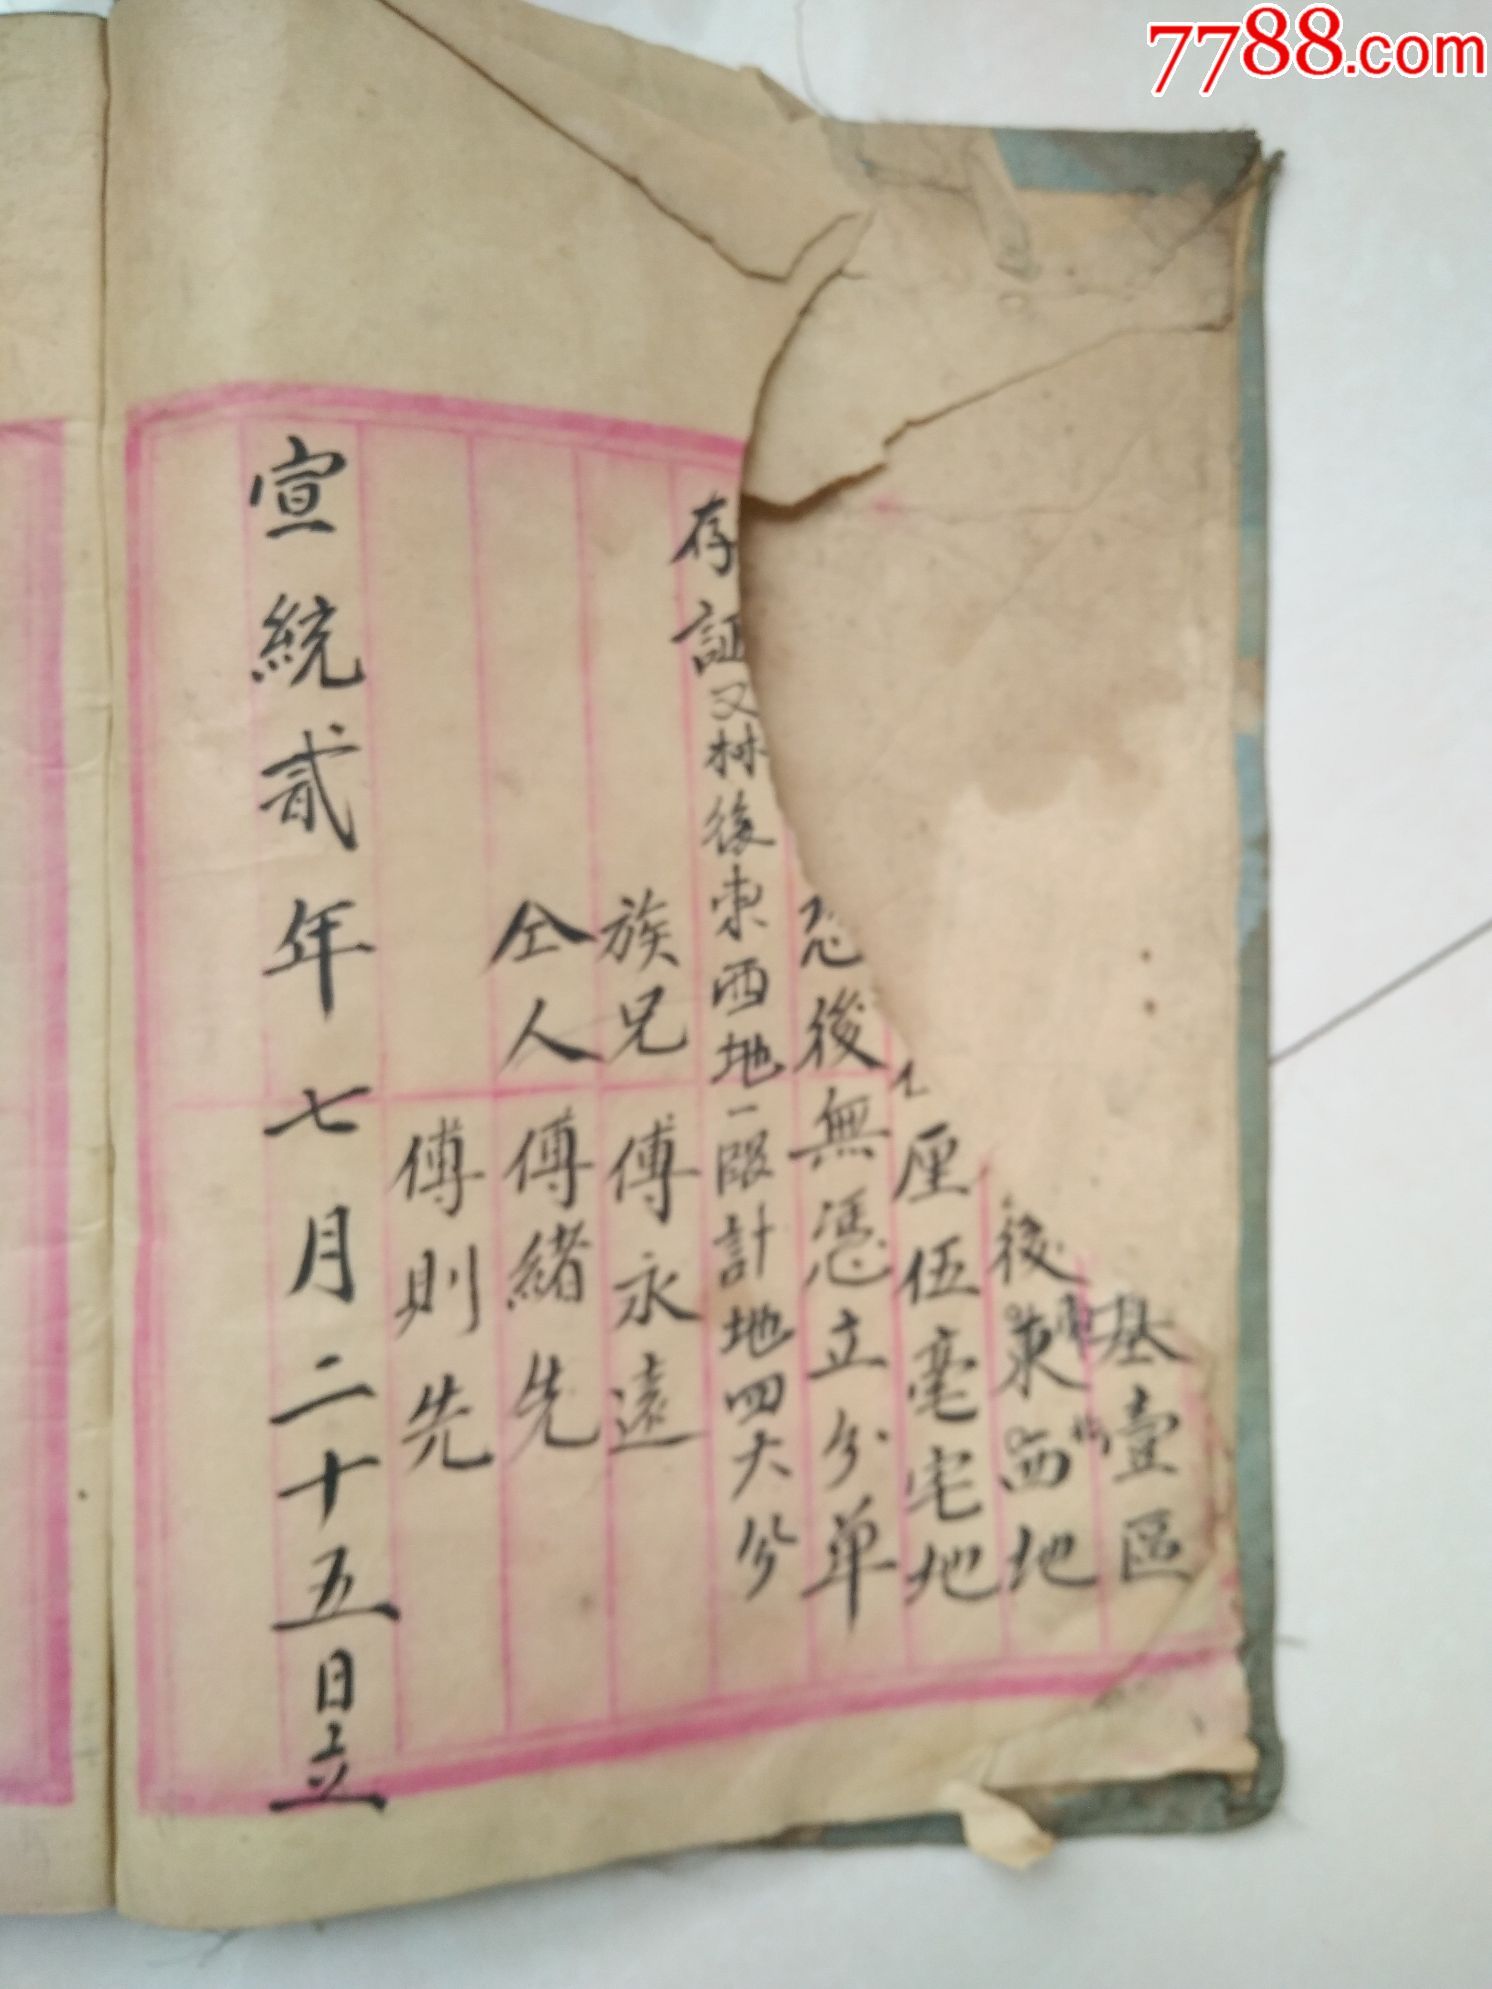 7788.com
基壹區
後東西地
厘伍毫宅地
恐後無憑立分單
存証又林後東西地一限計地四大分
族兄傅永遠
仝人傅緒先
傅則先
宣統貳年七月二十五日立